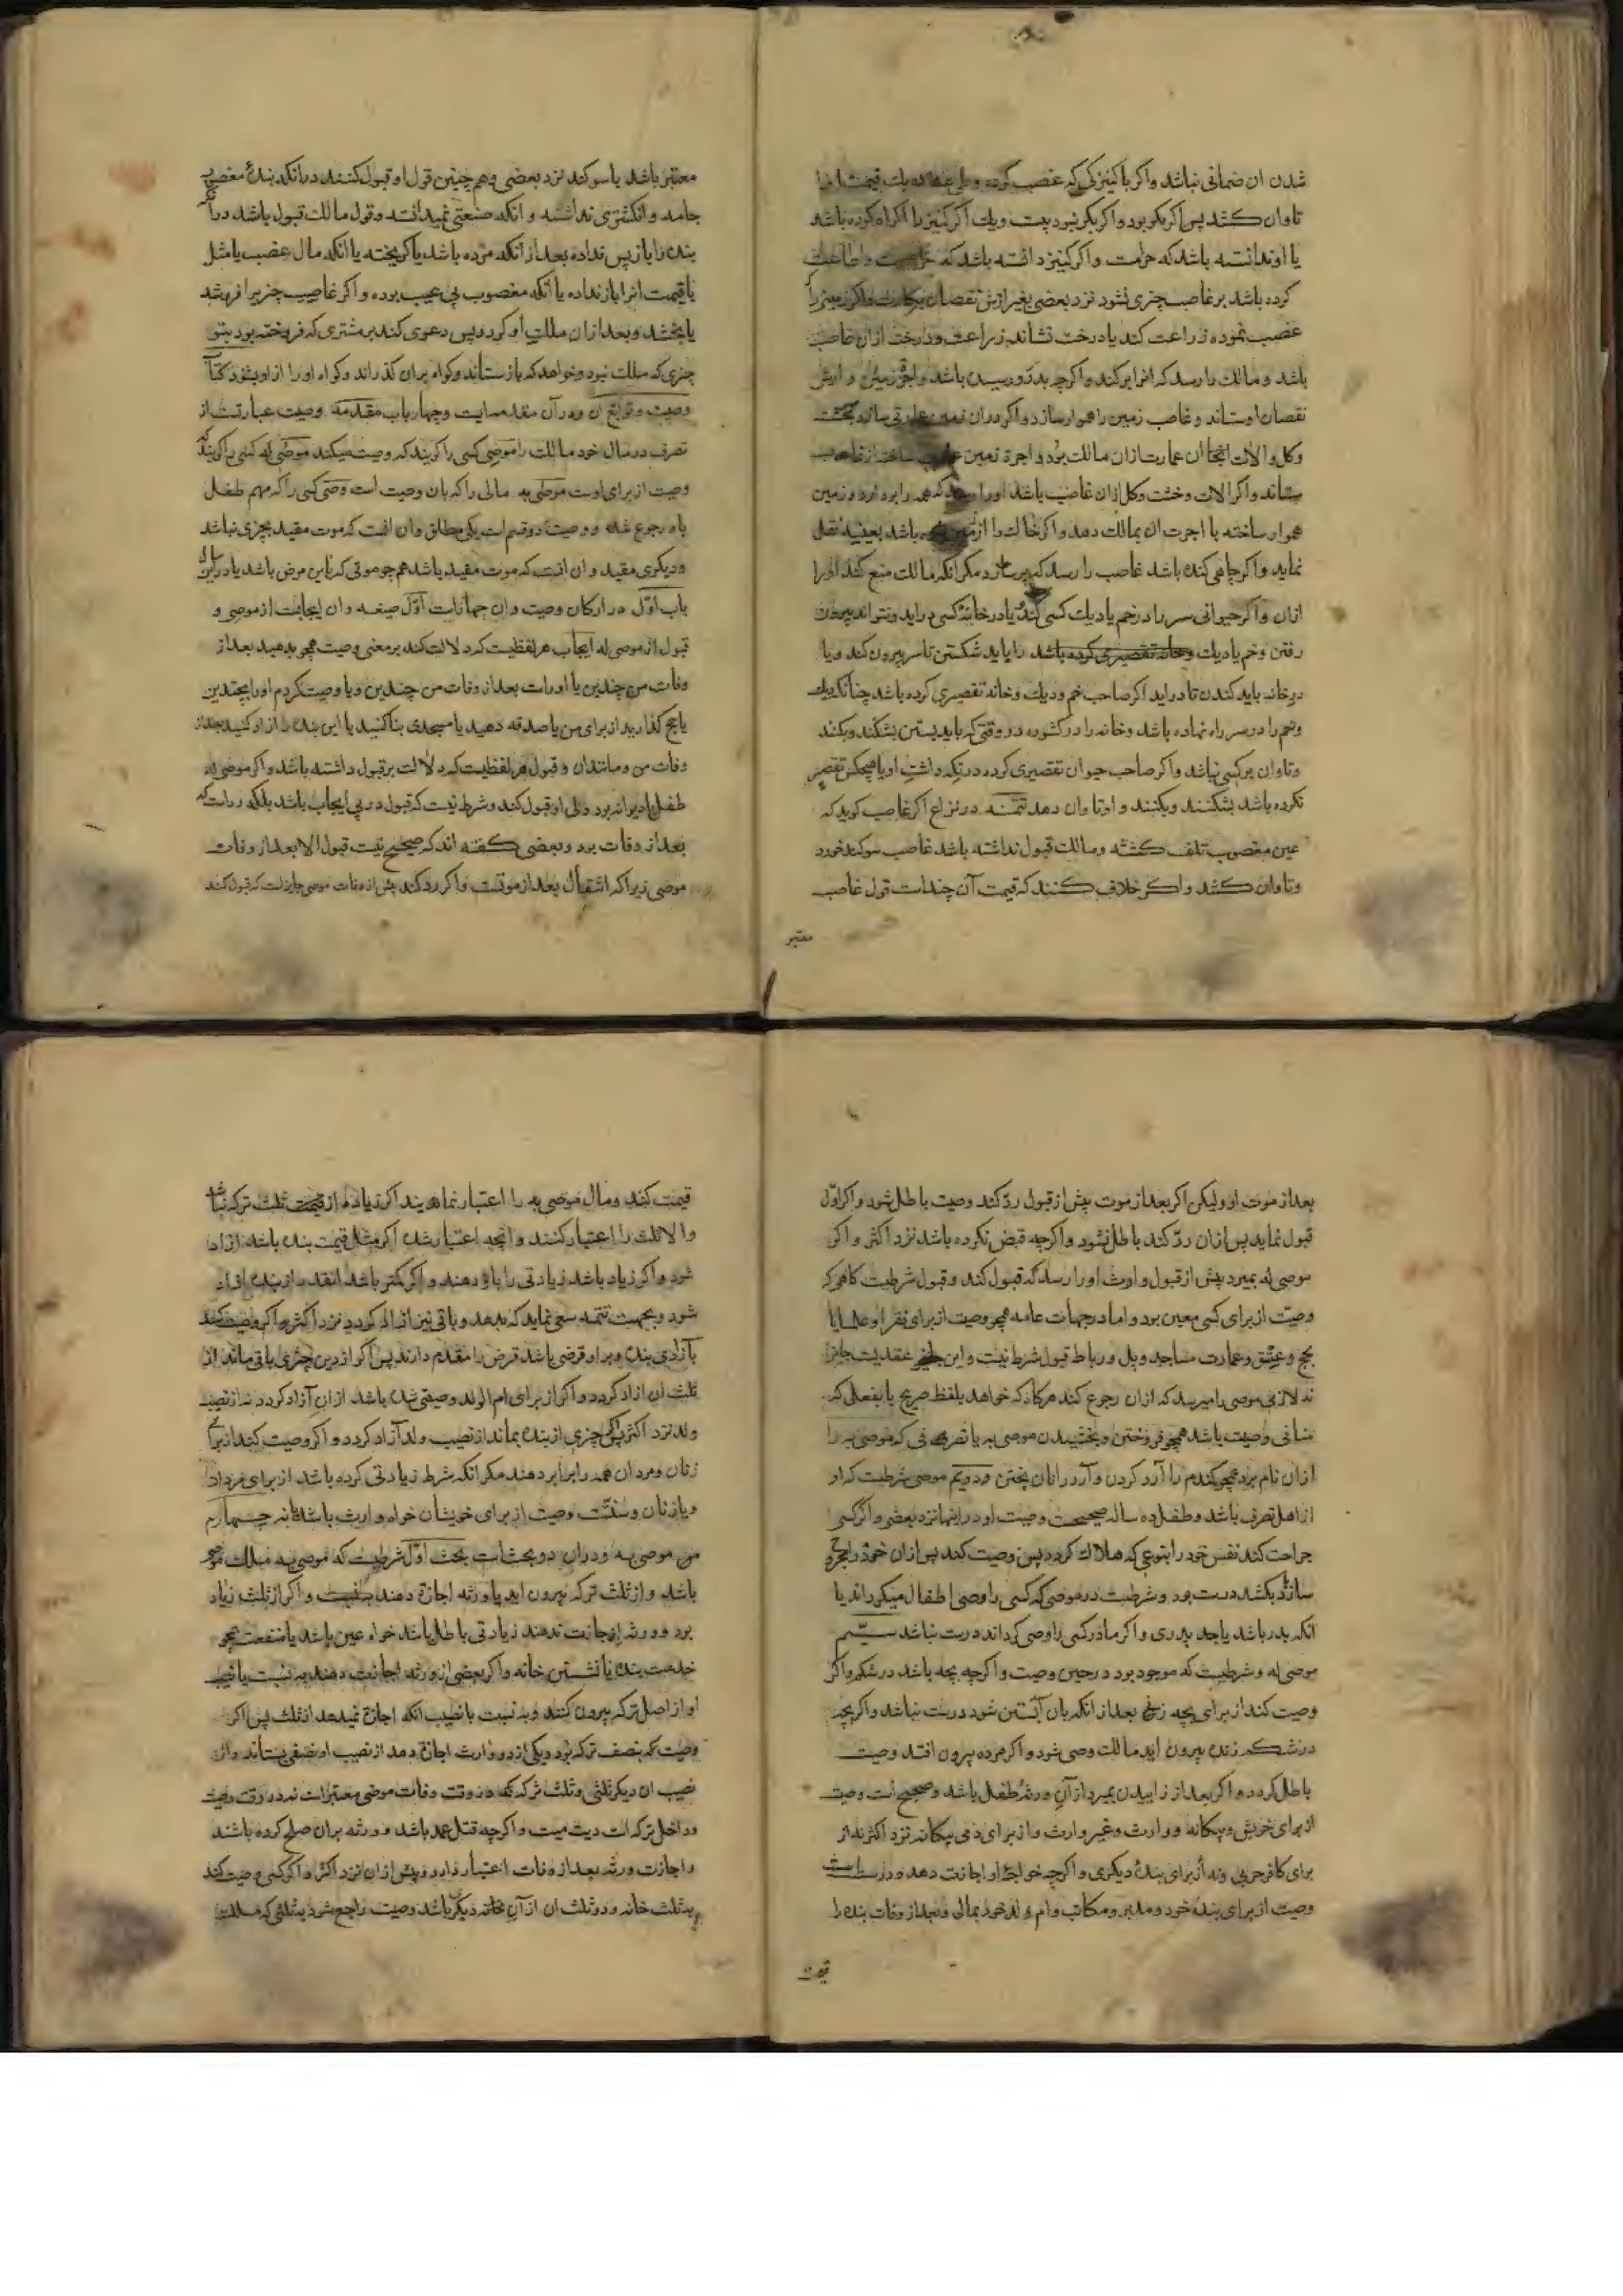 شدن ان ضمانی نباشد واکر باکنیزکی که غصب کرده وطی
تاوان کشد پس اکر بکر بود واکر بکر نبود بیست ویك اکر کنیز را اکراه کرده باشد
یا او ندانسته باشد که حرامست واکر کنیز دانسته باشد که
کرده باشد بر غاصب چیزی نشود نزد بعضی بغیر ازش نقصان بکارت واکر زمین را
غصب نموده زراعت کند یا درخت نشاند زراعت ودرخت ازان غاصب
باشد ومالك را رسد که انرا برکند واکرچه بدرو رسیدن باشد واجرة زمین وارش
نقصان او ستاند وغاصب زمین را هموار سازد واکر دران زمین عمارتی سازد بخشت
وکل والات انجا ان عمارت ازان مالك بود واجرة زمین ساخته از غاصب
ستاند واکر الات وخشت وکل ازان غاصب باشد اورا رسد که همه را بردارد وزمین
هموار ساخته با اجرت ان بمالك دهد واکر خاك را از باشد بعینه نقل
نماید واکر چاهی کنده باشد غاصب را رسد که پر سازد مکر انکه مالك منع کند اورا
ازان واکر حیوانی سر را در خم یا دیك کسی کند یا در خانهٔ کسی در اید ونتواند بیرون
رفتن وخم یا دیك وخانه تقصیری کرده باشد را باید شکستن تا سر بیرون کند ویا
در خانه باید کندن تا در اید اکر صاحب خم ودیك وخانه تقصیری کرده باشد چنانکه دیك
وخم را در سر راه نهاده باشد وخانه را در کشوده در وقتی که باید بستن بشکند وبکند
وتاوان بر کسی نباشد واکر صاحب حیوان تقصیری کرده در نکه داشت او یا هیچکس تقصیر
نکرده باشد بشکنند وبکنند واو تاوان دهد تتمه در نزاع اکر غاصب کوید که
عین مغصوب تلف کشته ومالك قبول نداشته باشد غاصب سوکند خورد
وتاوان کشد واکر خلاف کنند که قیمت آن چند است قول غاصب
معتبر
معتبر باشد با سوکند نزد بعضی وهم چنین قول او قبول کنند در انکه بندهٔ مغصوب
جامه وانکشتری نداشته وانکه صنعتی نمیدانسته وقول مالك قبول باشد در انکه
بنده را باز پس نداده بعد از انکه مرده باشد یا کریخته یا انکه مال غصب یا مثل
یا قیمت انرا باز نداده یا انکه مغصوب بی عیب بوده واکر غاصب چیزیرا فروشد
یا بخشد وبعد ازان ملك او کردد پس دعوی کند بر مشتری که فروخته بود بتو
چیزی که ملك نبود وخواهد که باز ستاند وکواه بران کذراند وکواه اورا از او بشنود کتاب
وصیت وتوابع ان ودر آن مقدمه ایست وچهار باب مقدمه وصیت عبارتست از
تصرف در مال خود مالك را موصی کسی را کویند که وصیت میکند موصی له کسی را کویند که
وصیت از برای اوست موصی به مالی را که بان وصیت است وصی کسی را که مهم طفل
باو رجوع شده ووصیت دو قسم است یکی مطلق وان انست که موت مقید بچیزی نباشد
ودیکری مقید وان انست که موت مقید باشد هم چو موتی که باین مرض باشد یا در این
باب اوّل در ارکان وصیت وان چهار است اوّل صیغه وان ایجابست از موصی و
قبول از موصی له ایجاب هر لفظیست که دلالت کند بر معنی وصیت همچو بدهید بعد از
وفات من چندین یا اوراست بعد از وفات من چندین ویا وصیت کردم اورا بچندین
یا حج کذارید از برای من یا صدقه دهید یا مسجدی بنا کنید یا این بنده را ازاد کنید بعد از
وفات من ومانندان وقبول هر لفظیست که دلالت بر قبول داشته باشد واکر موصی له
طفل یا دیوانه بود ولی او قبول کند وشرط نیست که قبول در پی ایجاب باشد بلکه رواست که
بعد از وفات بود وبعضی کفته اند که صحیح نیست قبول الا بعد از وفات
موصی زیرا که انتقال بعد از موتست واکر رد کند پیش از وفات موصی جایز است که قبول کند
بعد از موت او ولیکن اکر بعد از موت پیش از قبول ردّ کند وصیت باطل شود واکر اوّل
قبول نماید پس ازان ردّ کند باطل نشود واکرچه قبض نکرده باشد نزد اکثر واکر
موصی له بمیرد پیش از قبول وارث اورا رسد که قبول کند وقبول شرطست کاهی که
وصیّت از برای کسی معین بود واما در جهات عامه همچو وصیت از برای فقرا وعلما یا
بحج وعتق وعمارت مساجد وپل ورباط قبول شرط نیست واین عقدیست جایز
نه لازم موصی را میرسد که ازان رجوع کند هرکاه که خواهد بلفظ صریح یا بفعلی که
منافی وصیت باشد همچو فروختن وبخشیدن موصی به یا تصرفی که موصی به را
ازان نام برد همچو کندم را آرد کردن وآرد را نان پختن ودویم موصی شرطست که او
از اهل تصرف باشد وطفل ده ساله صحیحست وصیت او در اینها نزد بعضی واکر کسی
جراحت کند نفس خود را بنوعی که هلاك کردد پس وصیت کند پس ازان خود را مجروح
سازد یا بکشد درست بود وشرطست در موصی که کسی را وصی اطفال میکرداند یا
انکه پدر باشد یا جد پدری واکر مادر کسی را وصی کرداند درست نباشد سیّم
موصی له وشرطست که موجود بود در حین وصیت واکرچه بچه باشد در شکم واکر
وصیت کند از برای بچه زنی بعد از انکه بان آبستن شود درست نباشد واکر بچه
در شکم زنده بیرون اید مالك وصی شود واکر مرده بیرون افتد وصیت
باطل کردد واکر بعد از زاییدن بمیرد ازآن ورثهٔ طفل باشد وصحیح است وصیت
از برای خویش وبیکانه ووارث وغیر وارث واز برای ذمی بیکانه نزد اکثر نه از
برای کافر حربی ونه از برای بندهٔ دیکری واکرچه خواجهٔ او اجازت دهد ودرست است
وصیت از برای بندهٔ خود ومدبر ومکاتب وام ولد خود بمالی وبعد از وفات بنده را
قیمت
قیمت کنند ومال موصی به را اعتبار نمایند اکر زیاده از قیمت ثلث ترکه نباشد
والا ثلث را اعتبار کنند وانچه اعتبار شد اکر مثل قیمت بنده باشد ازاد
شود واکر زیاد باشد زیادتی را باو دهند واکر کمتر باشد انقدر از بنده ازاد
شود وبجهت تتمه سعی نماید که بدهد وباقی نیز ازاد کردد نزد اکثر واکر وصیت کند
بآزادی بنده وبر او قرضی باشد قرض را مقدم دارند پس اکر از دین چیزی باقی ماند از
ثلث ان ازاد کردد واکر از برای ام الولد وصیتی شده باشد ازان آزاد کردد نه از نصیب
ولد نزد اکثر پس چیزی از بنده بماند از نصیب ولد آزاد کردد واکر وصیت کند از برای
زنان ومردان همه را برابر دهند مکر انکه شرط زیادتی کرده باشد از برای مردان
ویا زنان وسنّت وصیت از برای خویشان خواه وارث باشد یا نه چهارم
موصی به ودران دو بحث است بحث اوّل شرطست که موصی به ملك موصی
باشد واز ثلث ترکه بیرون اید یا ورثه اجازة دهند واکر از ثلث زیاد
بود وورثه اجازت ندهند زیادتی باطل باشد خواه عین باشد یا منفعت همچو
خدمت بنده یا نشستن خانه واکر بعضی از ورثه اجازت دهند به نسبت با نصیب
او از اصل ترکه بیرون کنند وبه نسبت با نصیب انکه اجازة نمیدهد از ثلث پس اکر
وصیت که بنصف ترکه بود ویکی از دو وارث اجازة دهد از نصیب او نصفی بستاند واز
نصیب ان دیکر ثلثی وثلث ترکه که در وقت وفات موصی معتبر است نه در وقت وصیت
وداخل ترکه است دیت میت واکرچه قتل عمد باشد وورثه بران صلح کرده باشند
واجازت ورثه بعد از وفات اعتبار دارد وپیش ازان نزد اکثر واکر کسی وصیت کند
بثلث خانه ودو ثلث ان ازآن دیکر باشد وصیت راجع شود بثلثی که ملك